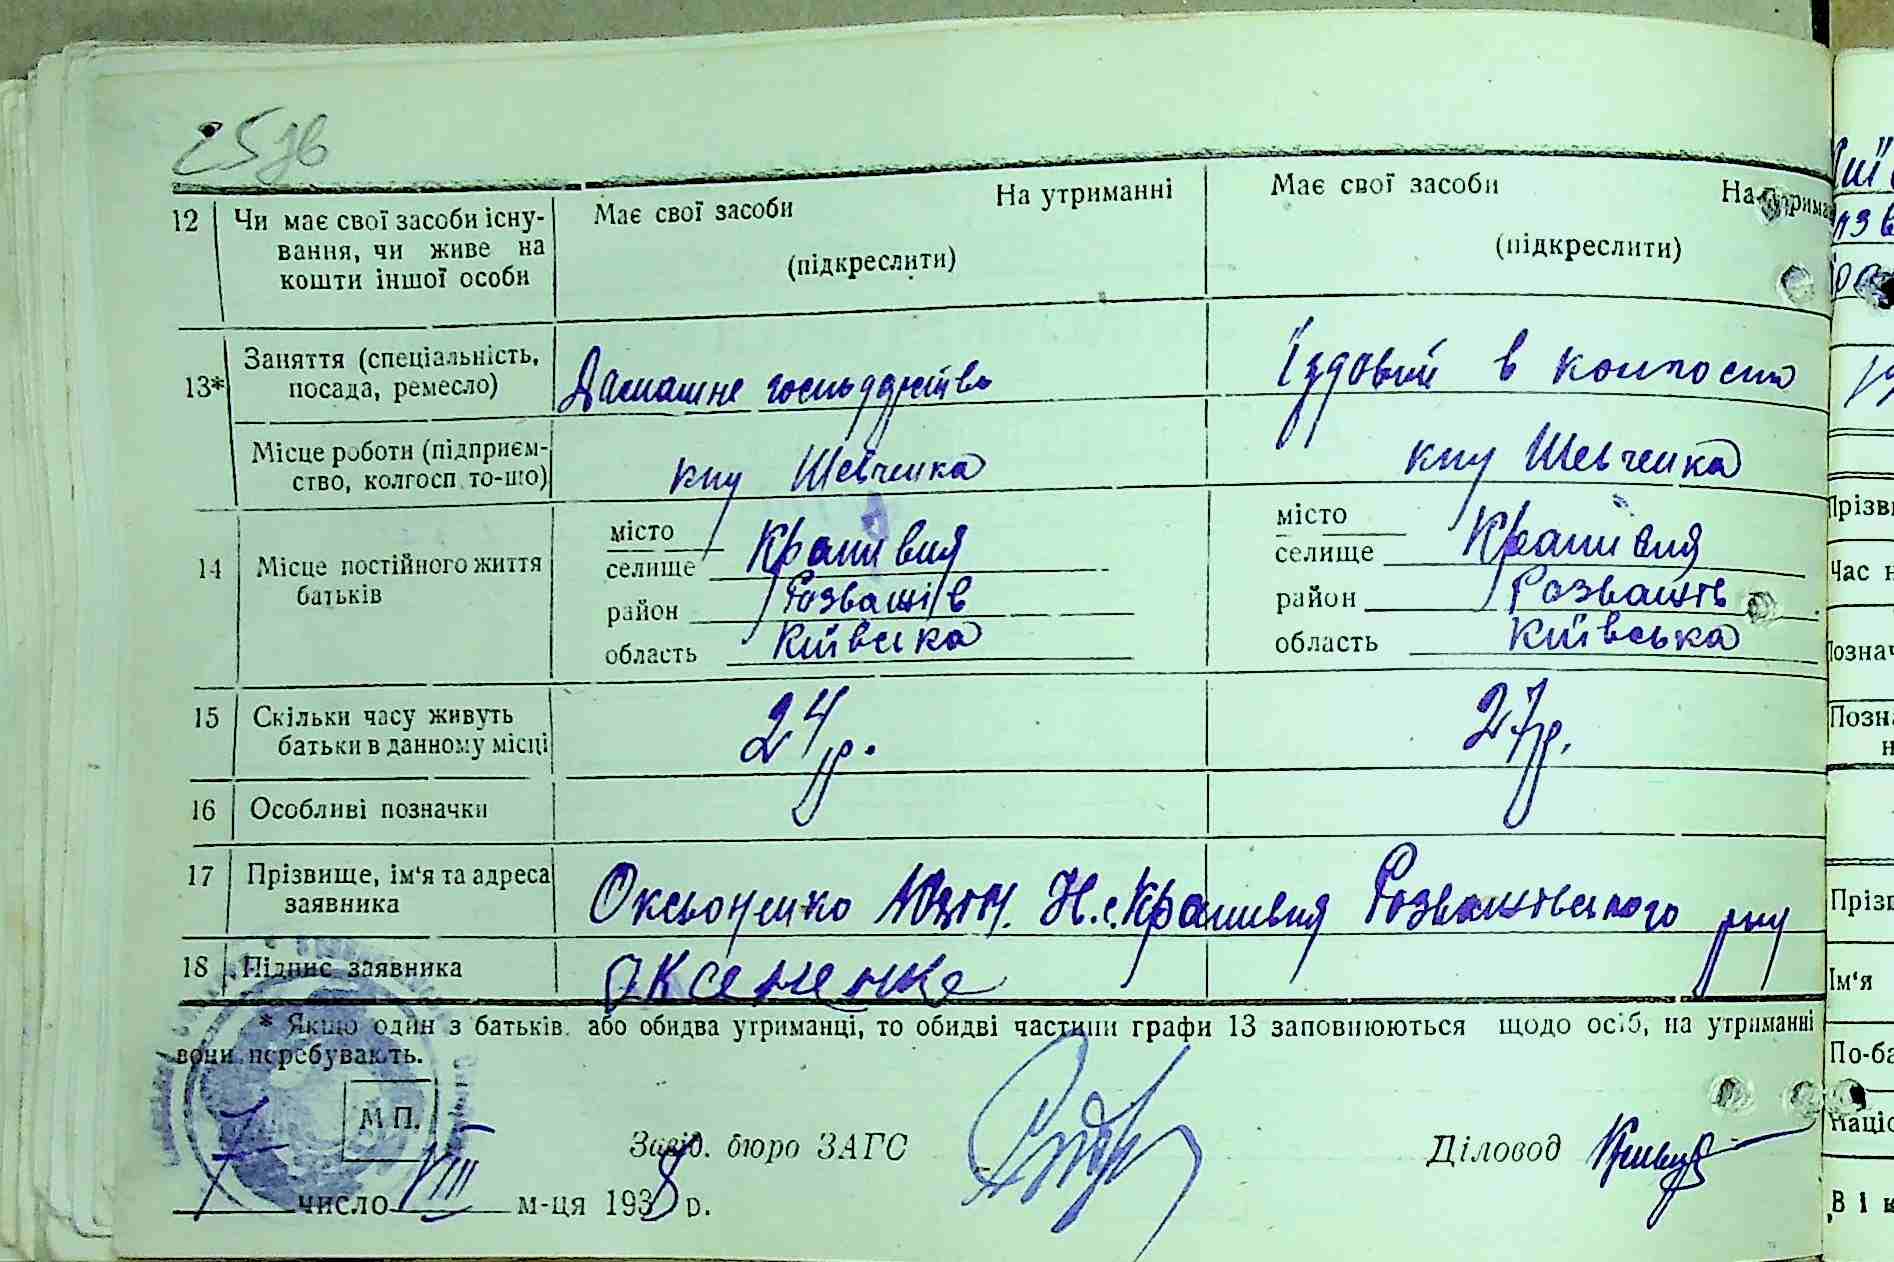 25зв
12 Чи має свої засоби існу- Має свої засоби На утриманні Має свої засоби На утрима
вання, чи живе на (підкреслити) (підкреслити)
кошти іншої особи
13* Заняття (спеціальність, Дамашне господарство Їздовий в колгоспи
посада, ремесло)
Місце роботи (підприєм- кпу Шевченка кпу Шевченка
ство, колгосп то-що)
14 Місце постійного життя місто Крапивня місто Крапивня
батьків селище селище
район Розважів район Розважів
область Київска область Київська
15 Скільки часу живуть 24р. 27р.
батьки в данному місці
16 Особливі позначки
17 Прізвище, ім'я та адреса Оксьоненко Н. с. Крапивня Розважівського рну
заявника
18 Підпис заявника Оксененко
* Якщо один з батьків або обидва утриманці, то обидві частини графи 13 заповнюються щодо осіб, на утриманні
вони перебувають.
М П.
Завід. бюро ЗАГС Діловод
7 число VIII м-ця 1938 р.
Прізви
Час н
Познач
Позна
н
Пріз
Ім'я
По-ба
Націо
В і к